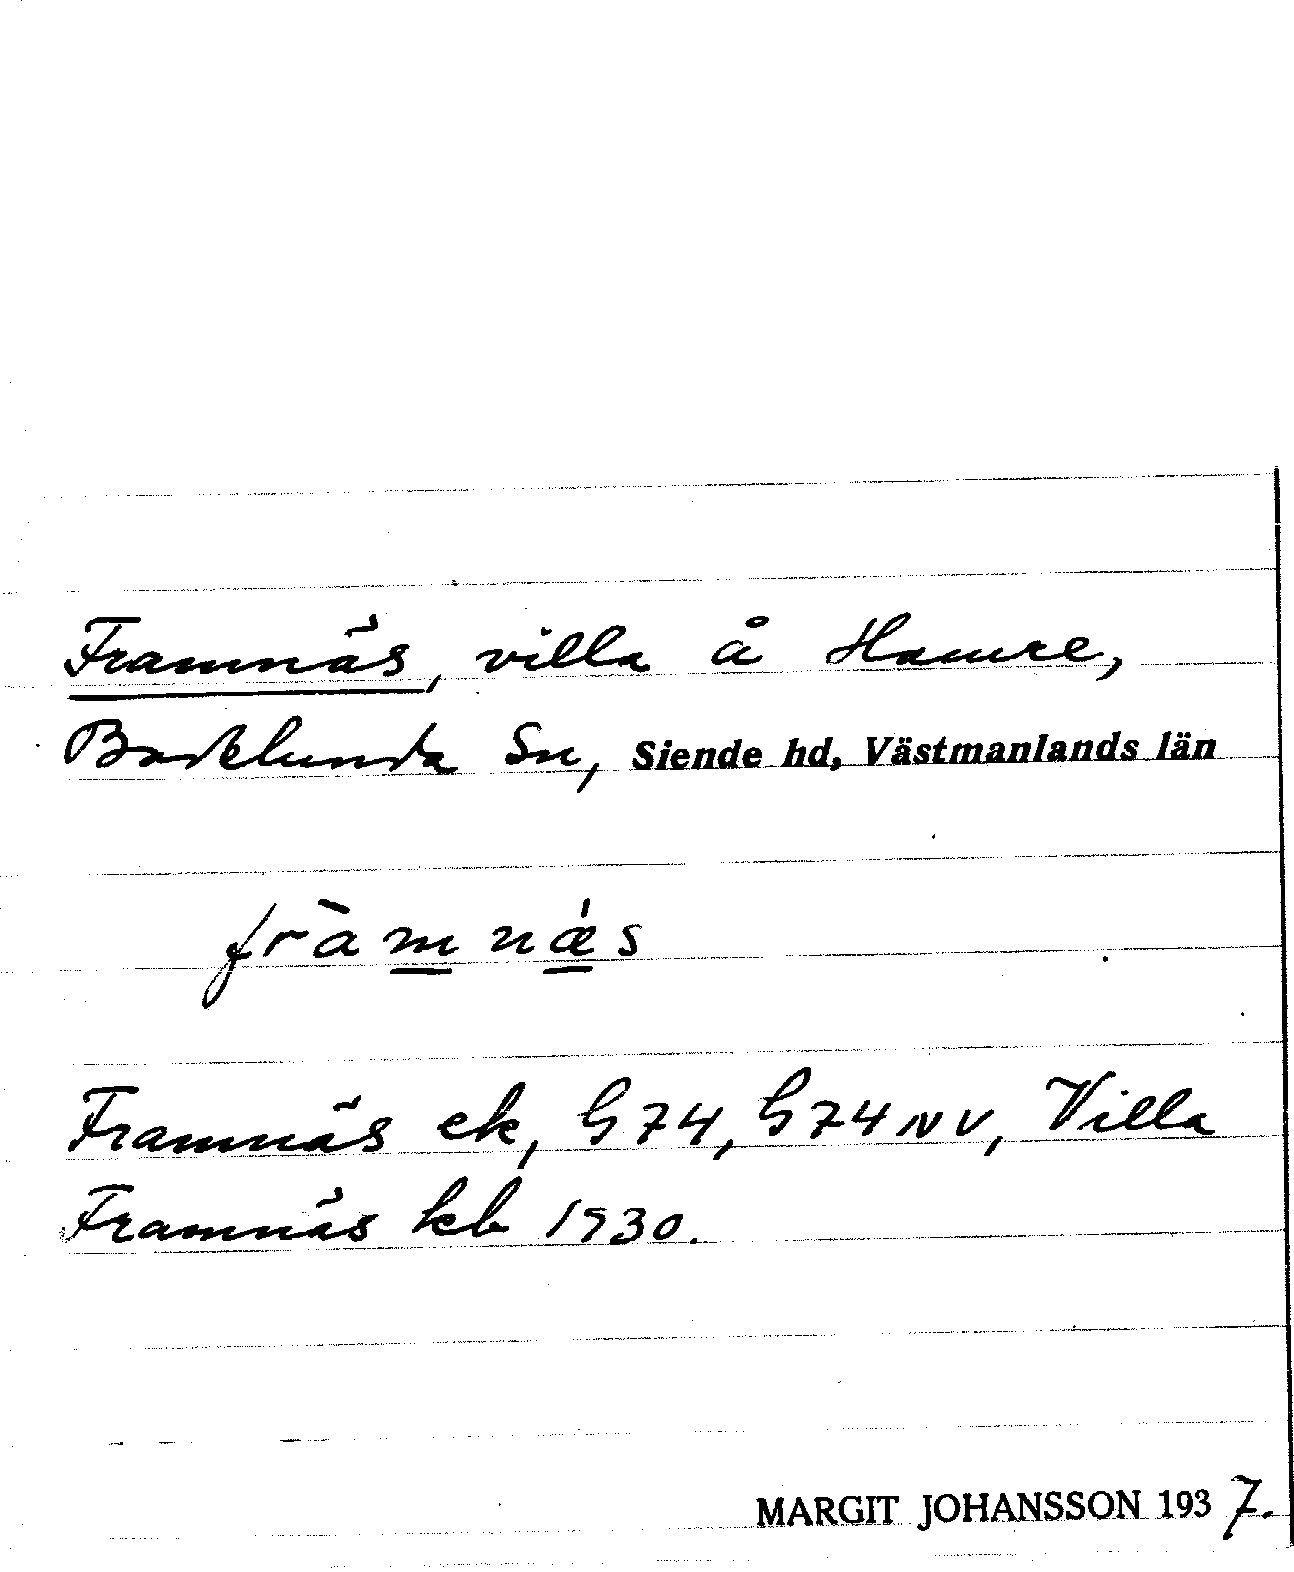 Framnäs, villa å Hamre,
Badelunda Sn, Siende hd, Västmanlands län
fràmnǽs
Framnäs ek, G74, G74NV, Villa
Framnäs kb 1930.
MARGIT JOHANSSON 1937.